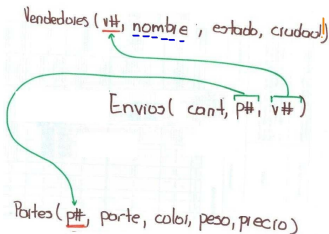 Vendedores ( v#, nombre, estado, ciudad)
Envios( cant, p#, v#)
Partes (p#, parte, color, peso, precio)